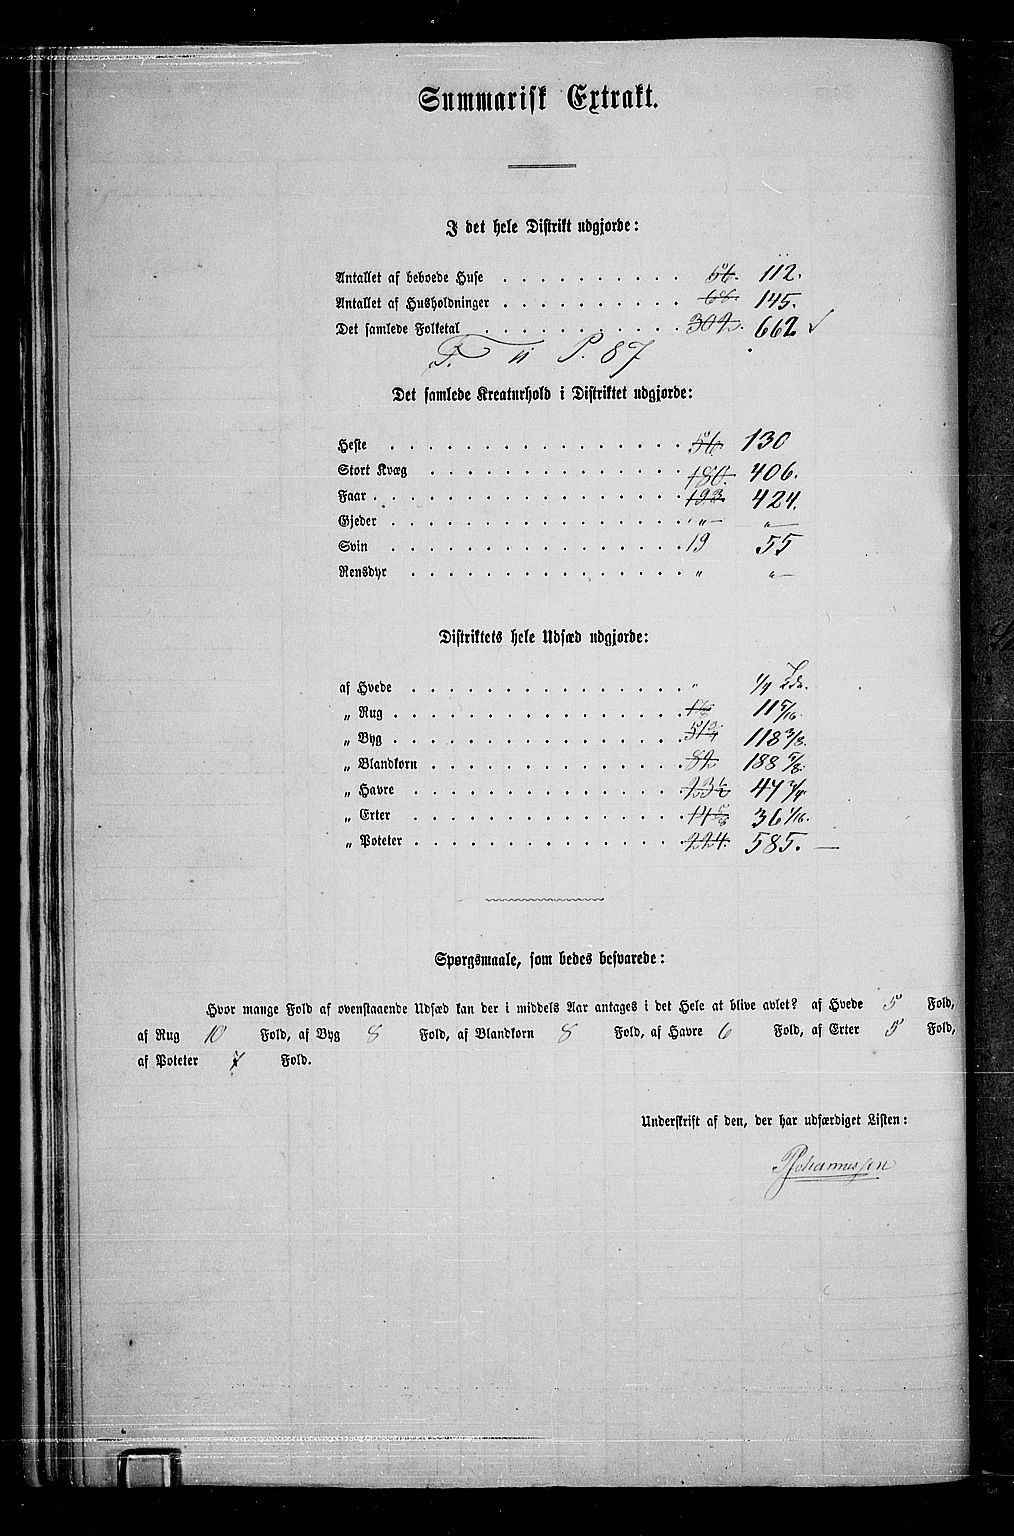 Summarisk Extrakt.
I det hele Distrikt udgjorde:
Antallet af beboede Huse . . . . . . . . . . 56. 112.
Antallet af Husholdninger . . . . . . . . . . 68. 145.
Det samlede Folketal . . . . . . . . . . . 302. 662 ✓
P. 87
Det samlede Kreaturhold i Distriktet udgjorde:
Heste . . . . . . . . . . . . . . . 56 130
Stort Kvæg . . . . . . . . . . . . . 180. 406.
Faar . . . . . . . . . . . . . . . . 193. 424.
Gjeder . . . . . . . . . . . . . . . „ „
Svin . . . . . . . . . . . . . . . 19 55
Rensdyr . . . . . . . . . . . . . . „ „
Distriktets hele Udsæd udgjorde:
af Hvede . . . . . . . . . . . . . . „ 1/4 Tdr.
„ Rug . . . . . . . . . . . . . . . 11 5/16.
„ Byg . . . . . . . . . . . . . . . 51 3/4 118 3/8.
„ Blandkorn . . . . . . . . . . . . . 82 188 5/8.
„ Havre . . . . . . . . . . . . . . 23 1/2 47 3/4.
„ Erter . . . . . . . . . . . . . . 14 5/8 36 1/16.
„ Poteter . . . . . . . . . . . . . . 224. 585. —
Spørgsmaale, som bedes besvarede:
Hvor mange Fold af ovenstaaende Udsæd kan der i middels Aar antages i det Hele at blive avlet? af Hvede 5 Fold,
af Rug 10 Fold, af Byg 8 Fold, af Blandkorn 8 Fold, af Havre 6 Fold, af Erter 5 Fold,
af Poteter 7 Fold.
Underskrift af den, der har udfærdiget Listen:
PJohannessen